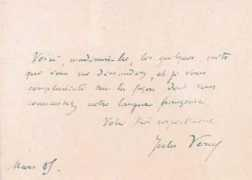 Voici, mademoiselle, les quelques mots
que vous me demandez, et je vous
complimente sur la façon dont vous
connaissez notre langue française.
Votre très respectueux
Jules Verne
Mars 05.